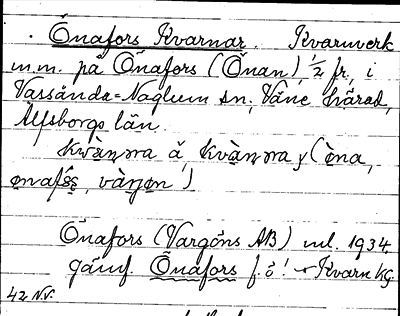 Önafors Kvarnar. Kvarnverk
m.m. på Önafors (Önan) 1/2 fr, i
Vassända-Naglum sn, Väne härad,
Älfsborgs län.
kvàɳɳa ǻ, kvàɳɳa y (
Önafors (Vargöns AB) enl. 1934
jämf. Önafors f.ö! Kvarn kg
42 N.V.